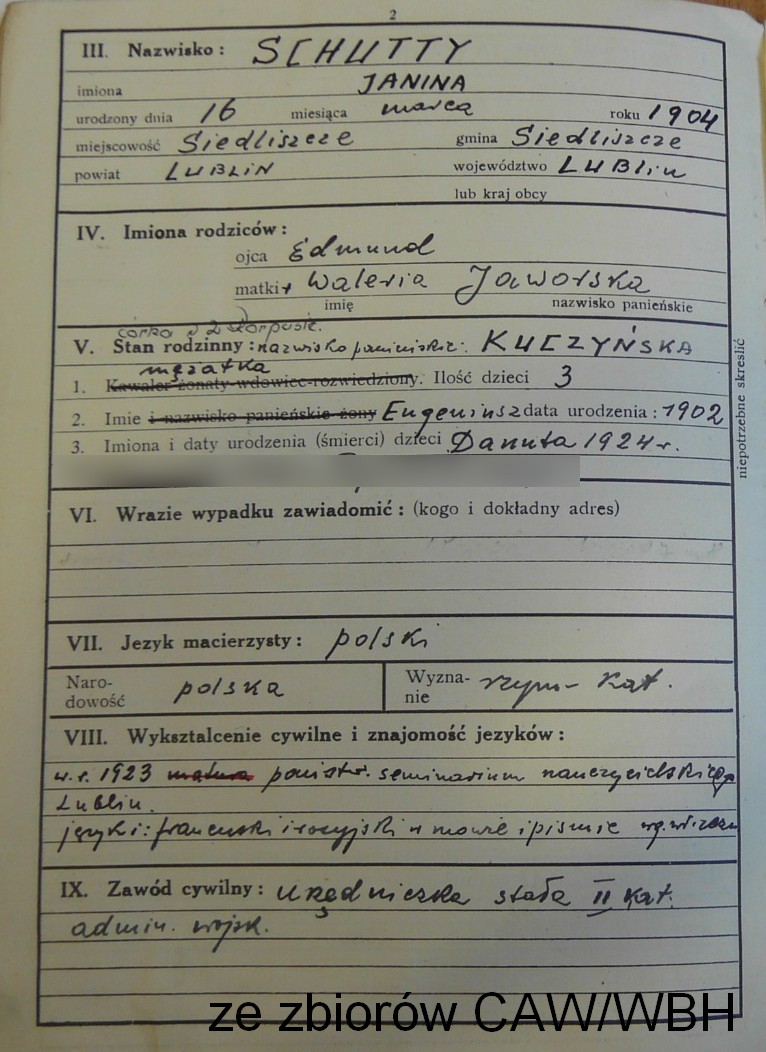 2
III. Nazwisko: SCHUTTY
imiona JANINA
urodzony dnia 16 miesiąca marca roku 1904
miejscowość Siedliszcze gmina Siedliszcze
powiat LUBLIN województwo LUBlin
lub kraj obcy
IV. Imiona rodziców:
ojca Edmund
matki Waleria Jaworska
imię nazwisko panieńskie
córka w 2 Korpusie.
V. Stan rodzinny: nazwisko panieńskie: KUCZYŃSKA
mężatka
1. Kawaler żonaty wdowiec rozwiedziony. Ilość dzieci 3
2. Imie i nazwisko panieńskie żony Eugeniusz data urodzenia: 1902
3. Imiona i daty urodzenia (śmierci) dzieci Danuta 1924 r.
niepotrzebne skreślić
VI. Wrazie wypadku zawiadomić: (kogo i dokładny adres)
VII. Jezyk macierzysty: polski
Naro-
dowość polska
Wyzna-
nie rzym-kat.
VIII. Wyksztalcenie cywilne i znajomość jezyków:
w.r. 1923 matura państw. seminarium nauczycielskiego
Lublin.
języki: francuski i rosyjski w mowie i piśmie
IX. Zawód cywilny: urzędniczka stała II kat.
admin. wojsk.
ze zbiorów CAW/WBH